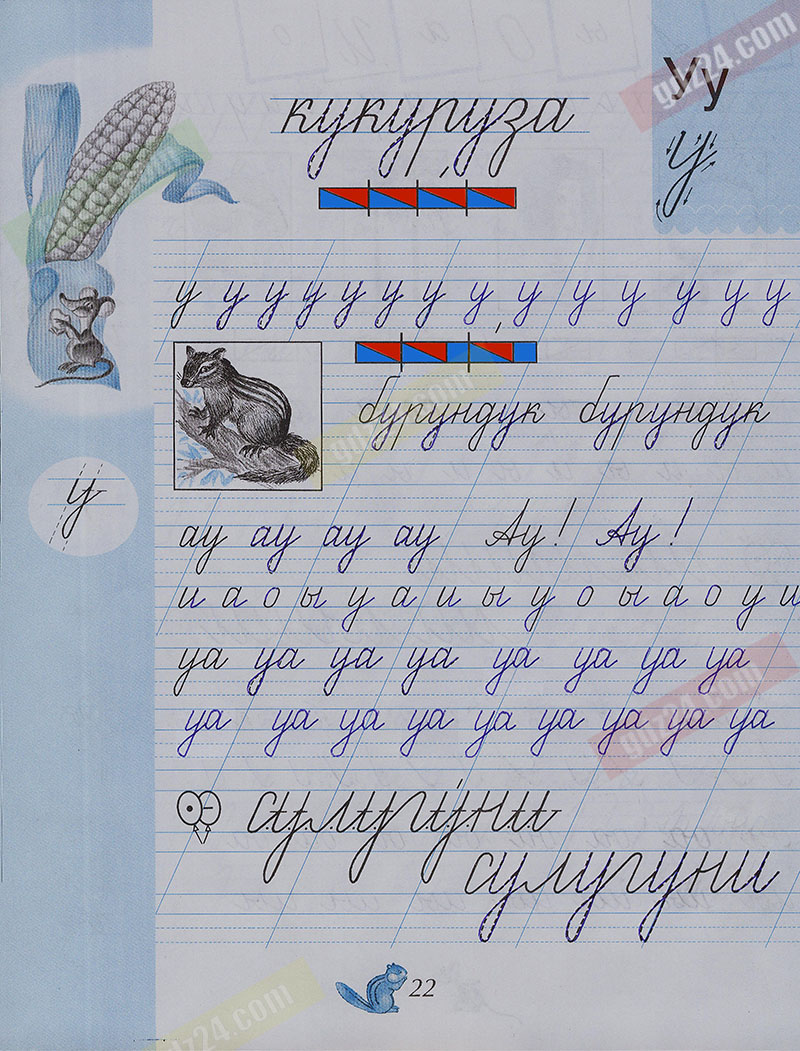 gdz24.com
Уу
кукуруза
у
у у у у у у у у у у у у у у
gdz24.com
бурундук бурундук
у
ау ау ау ау Ау! Ау!
и а о ы у а и ы у о ы а о у и
уа уа уа уа уа уа уа уа
gdz24.com
уа уа уа уа уа уа уа уа уа
сулугуни
сулугуни
22
gdz24.com